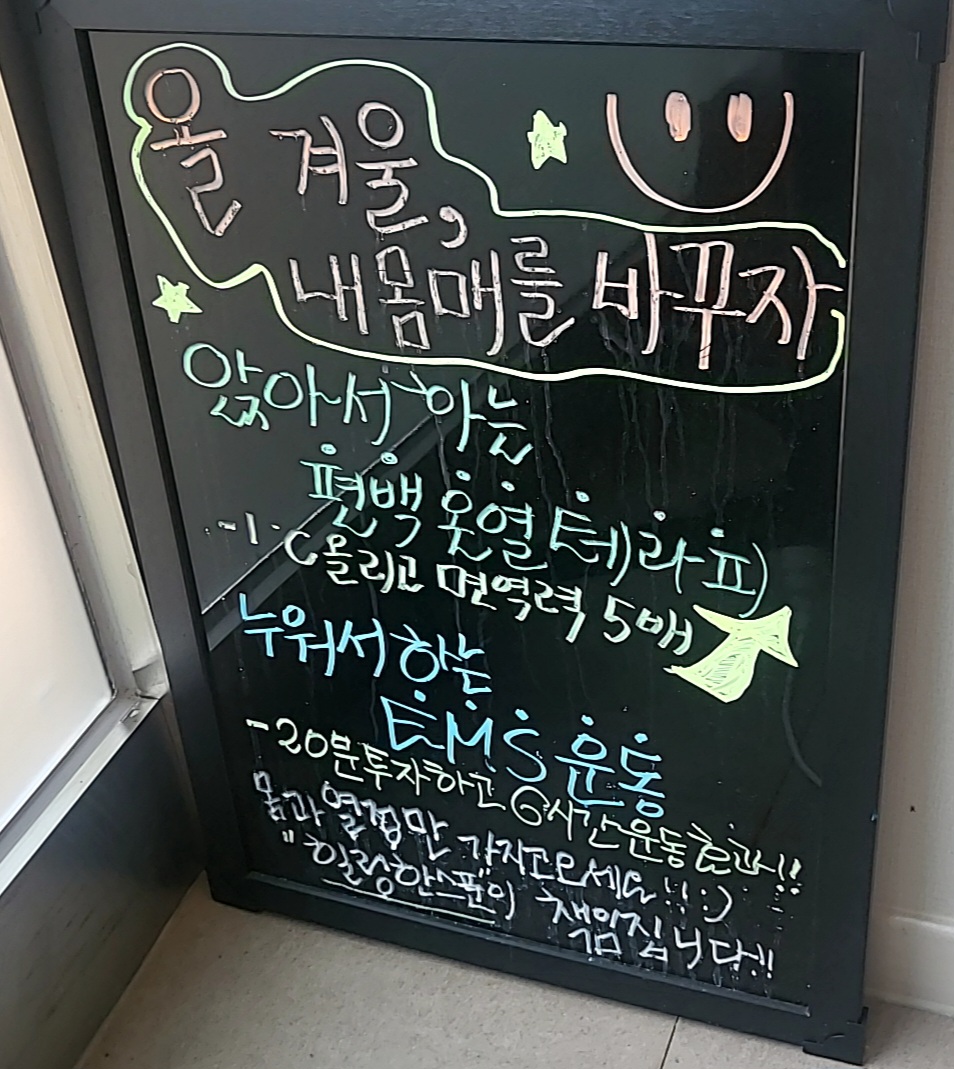 올 겨울,
내몸매를 바꾸자
앞아서 하는
편백 온열 테라피)
-1·C올리고 면역력 5배
누워서 하는
EMS 운동
-20분투자하고 6시간운동효과!!
몸과 열정만 가지고오세요!! :)
"힐링한스푼"이 책임집니다!!